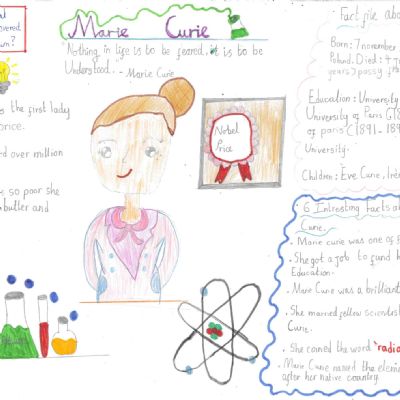 covered
?
Marie Curie
"Nothing in life is to be feared, it is to be
Understood." - Marie Curie
the first lady
over million
so poor she
butter and
Nobel
Price
Fact file
Born: 7 november
Poland. Died:
years)
Education: University
University of Paris
of paris (1891-189
University:
Children: Eve Curie,
6 Intresting Facts
Curie.
• Marie curie was one of
• She got a job to fund
Education.
• Marie Curie was a brilliant
• She married fellow scientist
Curie.
• She coined the word "radio
• Marie Curie named the eleme
after her native country.